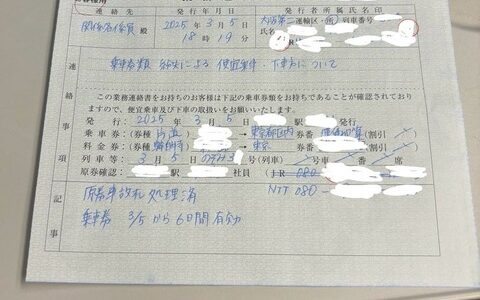 連絡先 発行年月日 発行者所属氏名印
関係各係員 殿 2025年3月5日 大阪第二運輸区・所 列車番号
18時19分 氏名
連絡事項
乗車券類 紛失による 便宜乗車・下車方について
この業務連絡書をお持ちのお客様は下記の乗車券類をお持ちであることが確認されており
ますので、便宜乗車及び下車の取扱いをお願いいたします。
発行：2025年3月5日 駅 発行
乗車券：（券種 片道 → 東京都区内 券番 （割引
料金券：（券種 → 東京 券番 （割引
列車等：3月5日 のぞみ 号（列車） 号車 番 席
原券確認： 駅 社員 （JR 080
NTT 080-
記事
原券車改札処理済
乗車券 3/5から6日間有効